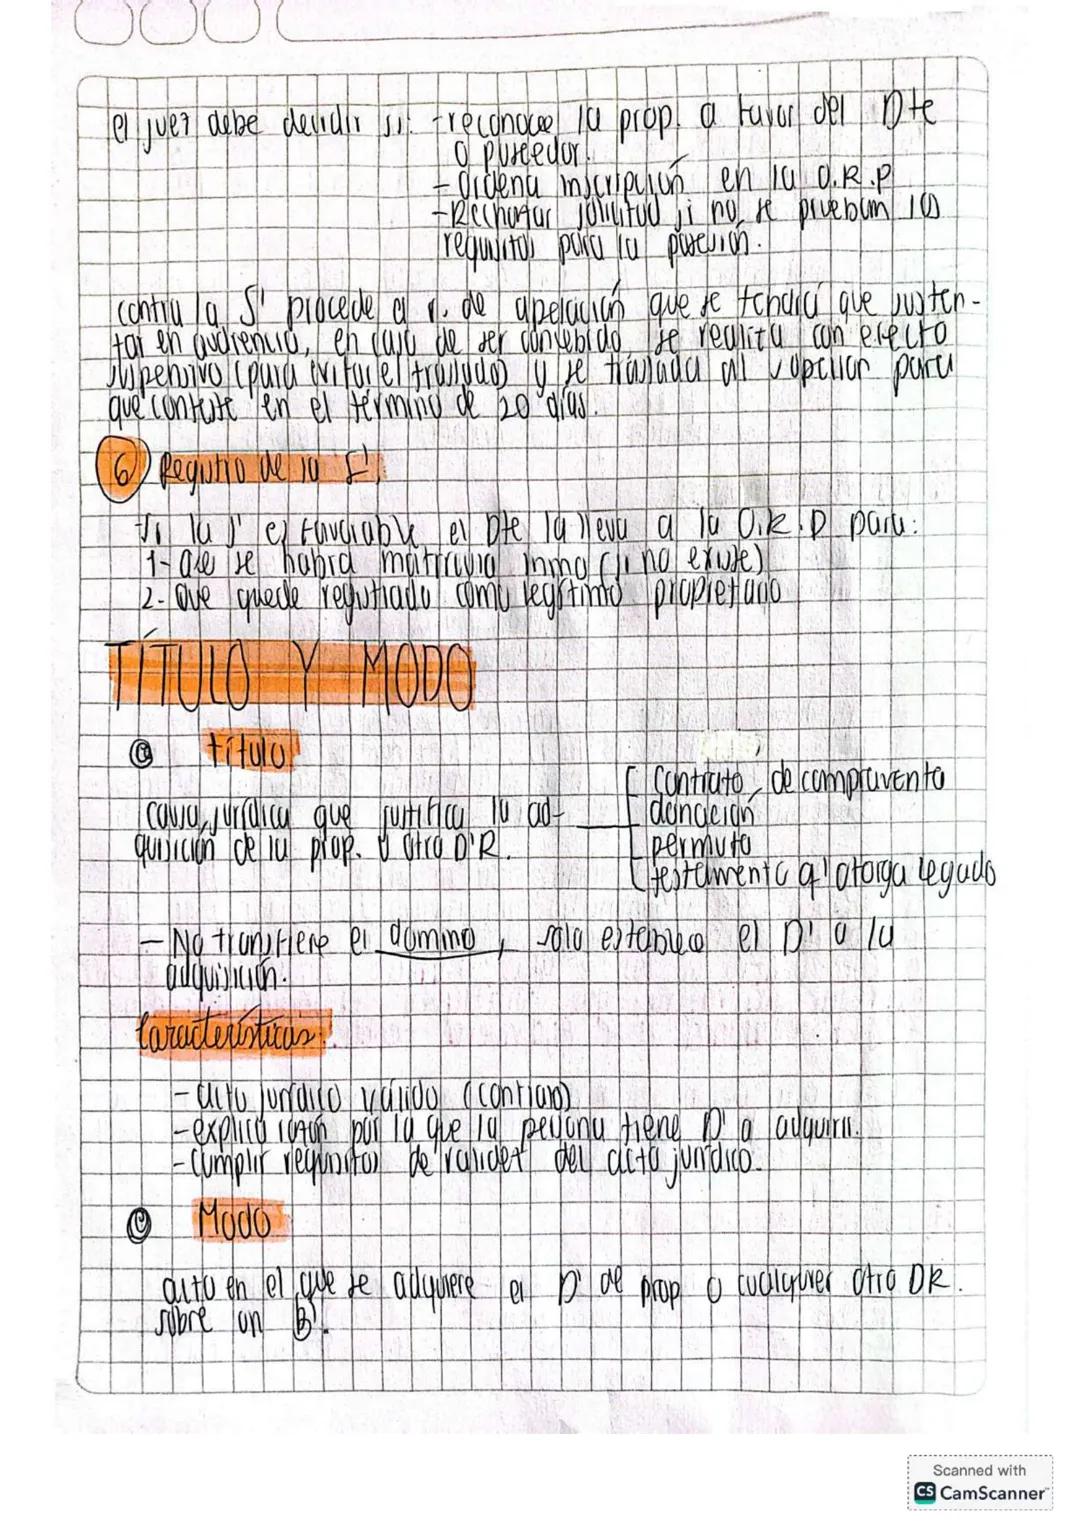 el juez debe decidir si: -reconoce la prop. a favor del Dte
o poseedor.
- Ordena inscripción en la O.R.P
-Rechazar solicitud si no se prueban los
requisitos para la posesión.
contra la S' procede el r. de apelación que se tendrá que susten-
tar en audiencia, en caso de ser concebido se realiza con efecto
suspensivo (para evitar el traslado) y se traslada al opositor para
que conteste en el término de 20 días.
6 Registro de la S'
-Si la S' es favorable el Dte la lleva a la O.R.P para:
1- Que se habra matricula inmo (si no existe)
2- Que quede registrado como legítimo propietario
TÍTULO Y MODO
título
causa jurídica que justifica la ad-
quisición de la prop. u otro D'R.
Contrato de compraventa
donación
permuta
testamento q' otorga legado
- No transfiere el domino, solo establece el D' a la
adquisición.
Características:
- acto jurídico válido (contrato)
- explica razón por la que la persona tiene D' a adquirir.
- Cumplir requisitos de validez del acto jurídico.
Modo
acto en el que se adquiere el D' de prop o cualquier otro DR.
sobre un B'.
Scanned with
CS CamScanner